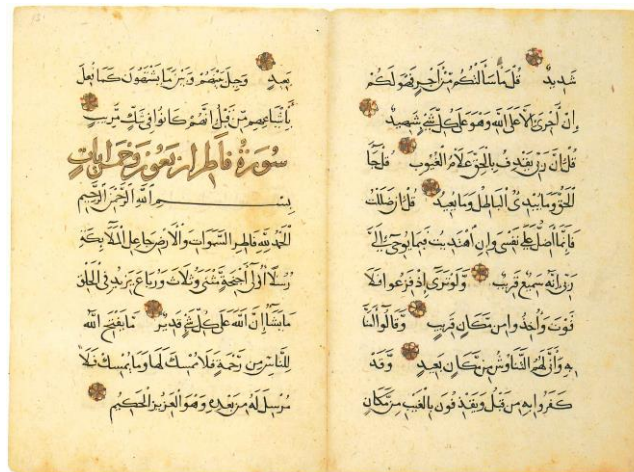 شديد قل ما سألتكم من اجر فهو لكم
ان اجرى الا على الله وهو على كل شئ شهيد
قل ان ربى يقذف بالحق علام الغيوب قل جا
الحق وما يبدئ الباطل وما يعيد قل ان ضللت
فانما اضل على نفسى وان اهتديت فبما يوحى الى
ربى انه سميع قريب ولو ترى اذ فزعوا فلا
فوت واخذوا من مكان قريب وقالوا امنا
به وانى لهم التناوش من مكان بعيد وقد
كفروا به من قبل ويقذفون بالغيب من مكان
بعيد وحيل بينهم وبين ما يشتهون كما فعل
باشياعهم من قبل انهم كانوا فى شك مريب
سورة فاطر اربعون وخمس ايات
بسم الله الرحمن الرحيم
الحمد لله فاطر السموات والارض جاعل الملائكة
رسلا اولى اجنحة مثنى وثلاث ورباع يزيد فى الخلق
ما يشا ان الله على كل شئ قدير ما يفتح الله
للناس من رحمة فلا ممسك لها وما يمسك فلا
مرسل له من بعده وهو العزيز الحكيم